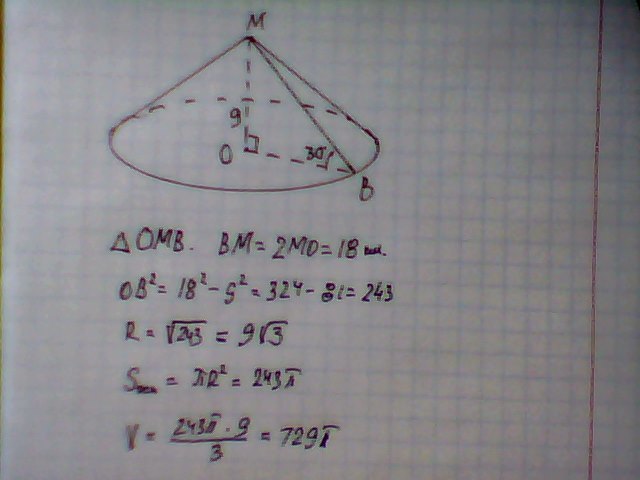 M
9
O
30°
B
Δ OMB. BM = 2MO = 18 см.
OB² = 18² - 9² = 324 - 81 = 243
R = √243 = 9√3
S = πR² = 243π
V = 243π · 9 / 3 = 729π